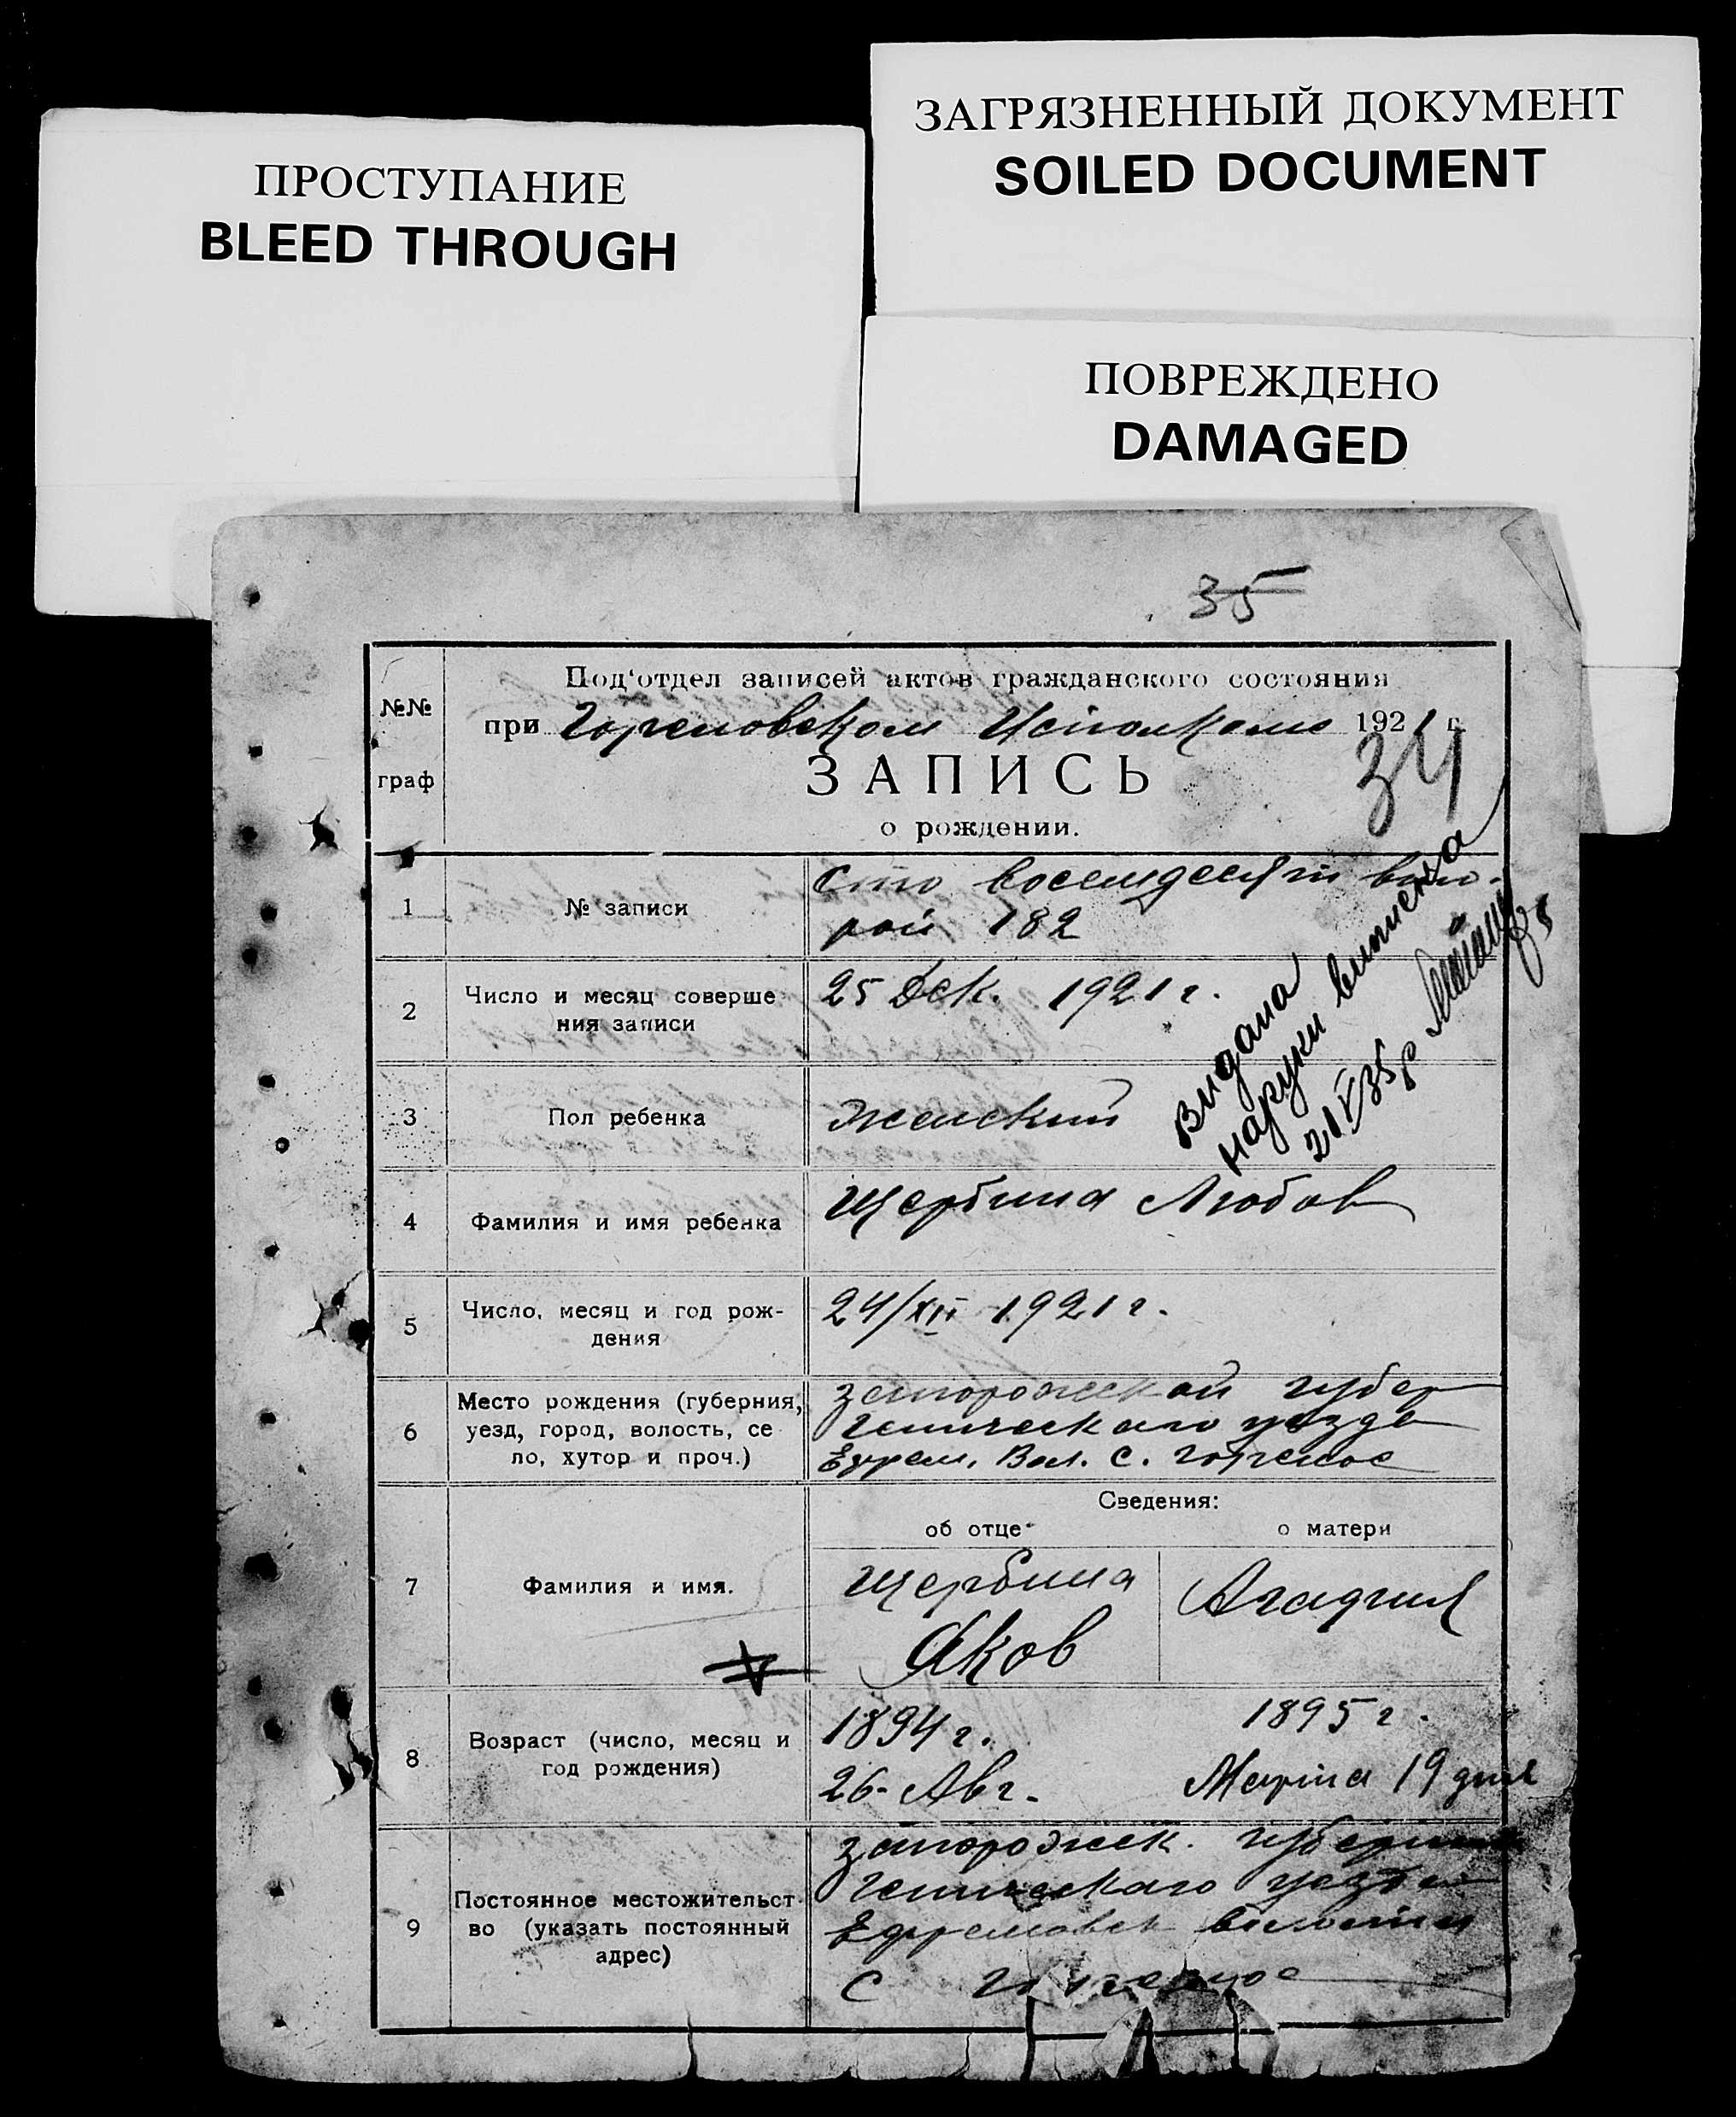 ПРОСТУПАНИЕ
BLEED THROUGH
ЗАГРЯЗНЕННЫЙ ДОКУМЕНТ
SOILED DOCUMENT
ПОВРЕЖДЕНО
DAMAGED
35
№№
граф
Под'отдел записей актов гражданского состояния
при Гореловском Исполкоме 1921 г.
34
ЗАПИСЬ
о рождении.
1
№ записи
Сто восемдесят вто-
рой 182
2
Число и месяц соверше
ния записи
25 Дек. 1921 г.
3
Пол ребенка
Женский
Видана
наруки виписка
21 V 35 р
4
Фамилия и имя ребенка
Щербина Любов
5
Число, месяц и год рож-
дения
24/XII 1921 г.
6
Место рождения (губерния,
уезд, город, волость, се
ло, хутор и проч.)
Запорожской губер
Геническаго уезда
Ефрем. Вол. С. Горелое
Сведения:
об отце
о матери
7
Фамилия и имя.
Щербина
Яков
8
Возраст (число, месяц и
год рождения)
1894 г.
26 - Авг.
1895 г.
Марта 19 дня
9
Постоянное местожительст
во (указать постоянный
адрес)
Запорожск. губернии
Геническаго уезда
Ефремовск волости
С